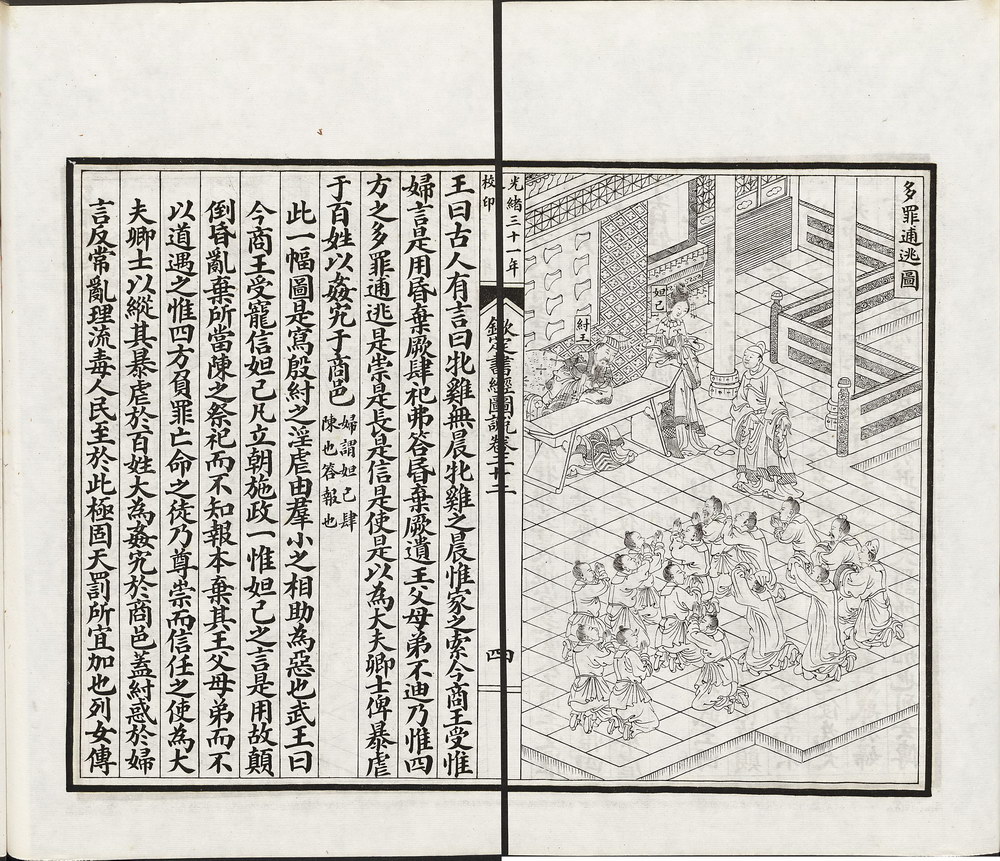 多罪逋逃圖
妲己
紂王
光緒三十一年
校印
欽定書經圖說卷二十二
四
王曰古人有言曰牝雞無晨牝雞之晨惟家之索今商王受惟
婦言是用昏棄厥肆祀弗答昏棄厥遺王父母弟不迪乃惟四
方之多罪逋逃是崇是長是信是使是以為大夫卿士俾暴虐
于百姓以姦宄于商邑
婦謂妲己肆
陳也答報也
此一幅圖是寫殷紂之淫虐由羣小之相助為惡也武王曰
今商王受寵信妲己凡立朝施政一惟妲己之言是用故顛
倒昏亂棄所當陳之祭祀而不知報本棄其王父母弟而不
以道遇之惟四方負罪亡命之徒乃尊崇而信任之使為大
夫卿士以縱其暴虐於百姓大為姦宄於商邑蓋紂惑於婦
言反常亂理流毒人民至於此極固天罰所宜加也列女傳